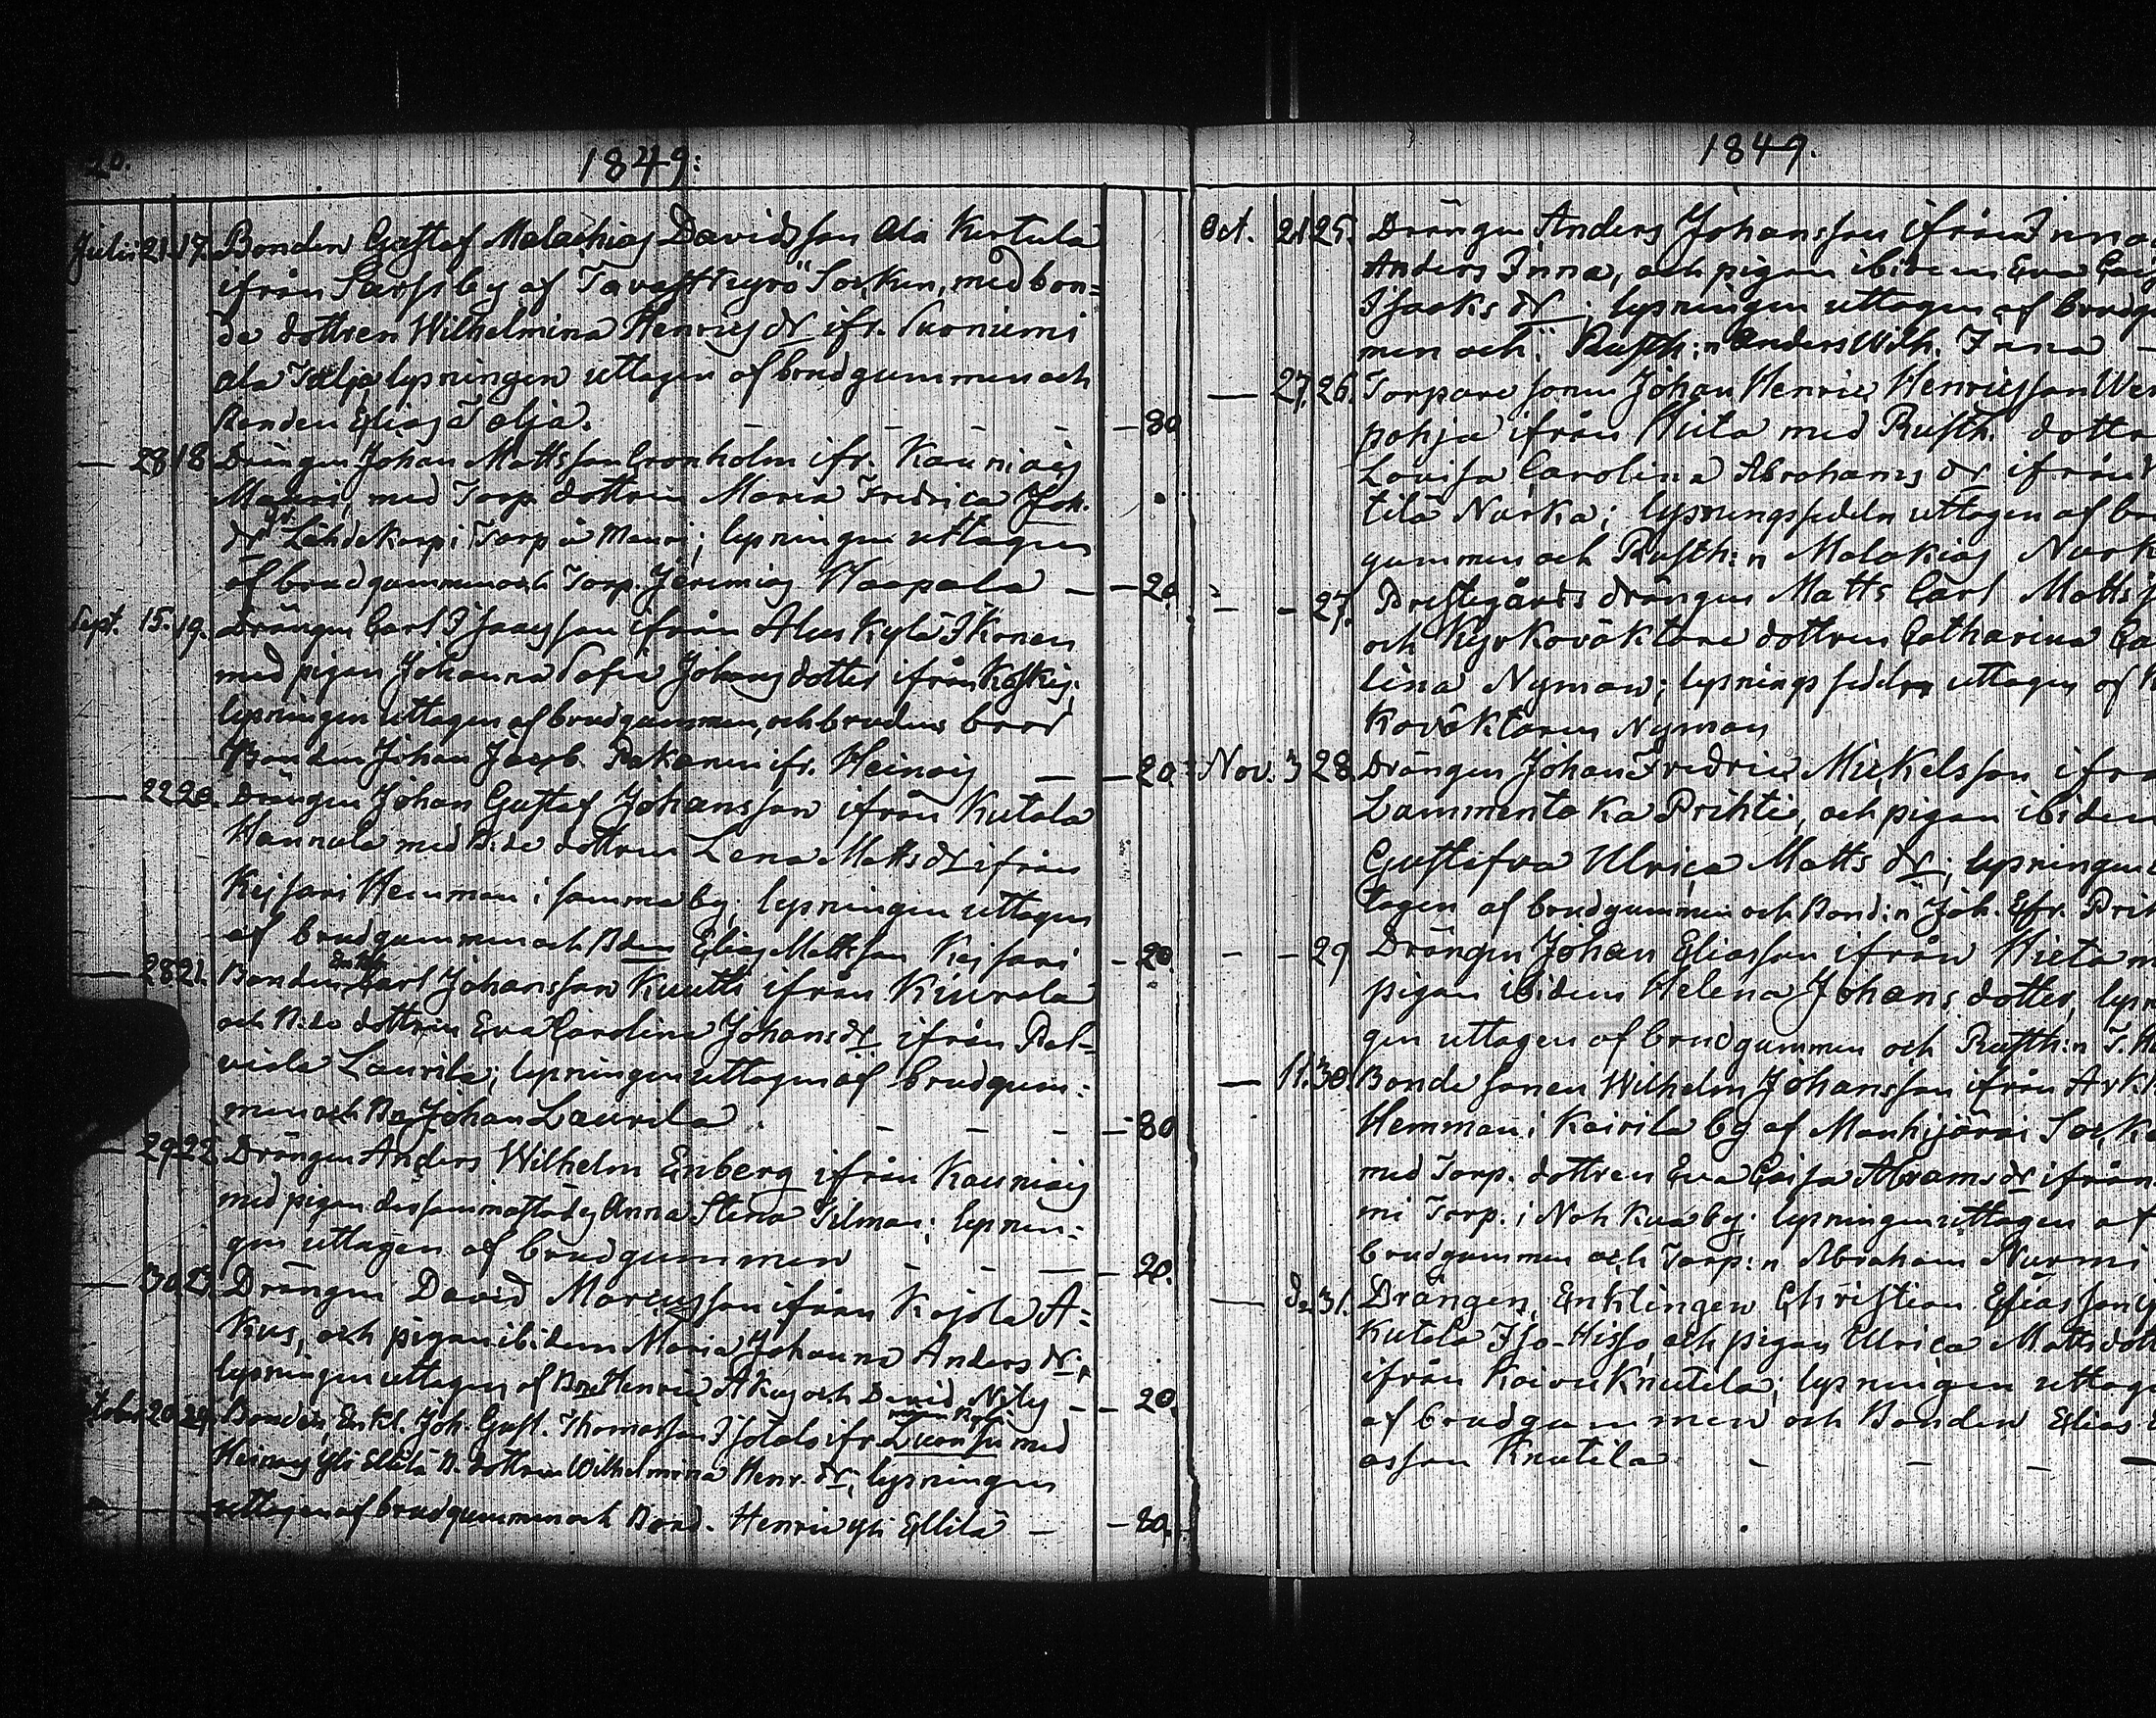 20.
1849:
Julii 21. 17. Bonden Gustaf Malachias Davidsson Ala Kertula
ifrån Sarfsby af Tavastkyrö Socken, med bon=
de dottren Wilhelmina Henrics dr ifr. Suoniemi
ala Talja lysningen uttagen af brudgummen och
Bonden Elias Talja. - - - - - 80
— 28 18 Drängen Johan Mattsson Cronholm ifr. Kauniais
Mauri, med Torp. dottren Maria Fredrica Joh.
dr Lähdekorpi Torp å Mauri; lysningen uttagen
af brudgummen och Torp. Jeremias Haapala — — 20.
Sept. 15. 19. Drängen Carl Isaacsson ifrån Aluskylä Ikonen
med pigan Johanna Sofia Johans dotter ifrån Koskis;
lysningen uttagen af brudgummen, och brudens bror
Bonden Johan Jacob Pakanen ifr. Heinois — — 20.
— 22 20. Drängen Johan Gustaf Johansson ifrån Kutala
Hannula med B:de dottren Lena Matts dr ifrån
Keisari Hemman i samma by; lysningen uttagen
af brudgummen och Bden Elias Mattsson Keisari - 20.
— 28 21. Bonden Enkl. Carl Johansson Knuth ifrån Kiurala
och B:de dottren Eva Carolina Johans dr ifrån Pal=
viala Laurila; lysningen uttagen af brudgum=
men och Bn Johan Laurila. - - - — 80
— 29 22. Drängen Anders Wilhelm Enberg ifrån Kauniais
med pigan dersammastädes Anna Stena Tilman; lysnin=
gen uttagen af brudgummen - - — - 20.
— 30 23. Drängen David Mariusson ifrån Kojola A=
kus, och pigan ibidem Maria Johanna Anders dr,
lysningen uttagen af Bn Henric Akus och David - — 20.
October 20. 24. Bonden, Enkl. Joh. Gust. Thomasson Isotalo ifr. med
Heinois Yli Ellilä B. dottren Wilhelmina Henr. dr; lysningen
uttagen af brudgummen och Bond. Henric Yli Ellilä — — 80.
1849.
Oct. 21 25. Drängen Anders Johansson ifrån Inna
Anders Inna, och pigan ibidem Eva
Isacks dr; lysningen uttagen af brudg
men och Rusth:n Anders Wilh. Inna —
— 27. 26. Torpare sonen Johan Henric Henricsson We
pohja ifrån Hiita med Rusth. dotter
Lovisa Carolina Abrahams dr ifrån
tilä Nuoka; lysningssedeln uttagen af br
gummen och Rusth:n Malakias
- - 27. Prestegårds drängen Matts Carl Matts
och Kyrkoväktare dottren Catharina Ca
lina Nyman; lysnings sedeln uttagen af K
koväktaren Nyman
Nov. 3 28. Drängen Johan Fredric Mickelsson ifr
Lammentaka Prihti, och pigan ibidem
Gustafva Ulrica Matts dr; lysningen
tagen af brudgummen och Bond:n Joh. Efr. Pri
- - 29 Drängen Johan Eliasson ifrån Hieta m
pigan ibidem Helena Johans dotter, lysn
gen uttagen af brudgummen och Rusth:n J. H
— 11. 30. Bonde sonen Wilhelm Johansson ifrån
Hemman i Kairila by af Mouhijärvi Socke
med Torp. dottren Eva Caisa Abrams dr ifrån
mi Torp. i Nohkua by; lysningen uttagen af
brudgummen och Torp:n Abraham Nurmi
— Do 31. Drängen, Enklingen Christian Eliasson
Kutala Iso-Hisso, och pigan Ulrica Matts dott
ifrån Koivu Knutila; lysningen uttag
af brudgummen och Bonden Elias
asson Knutila - - - —